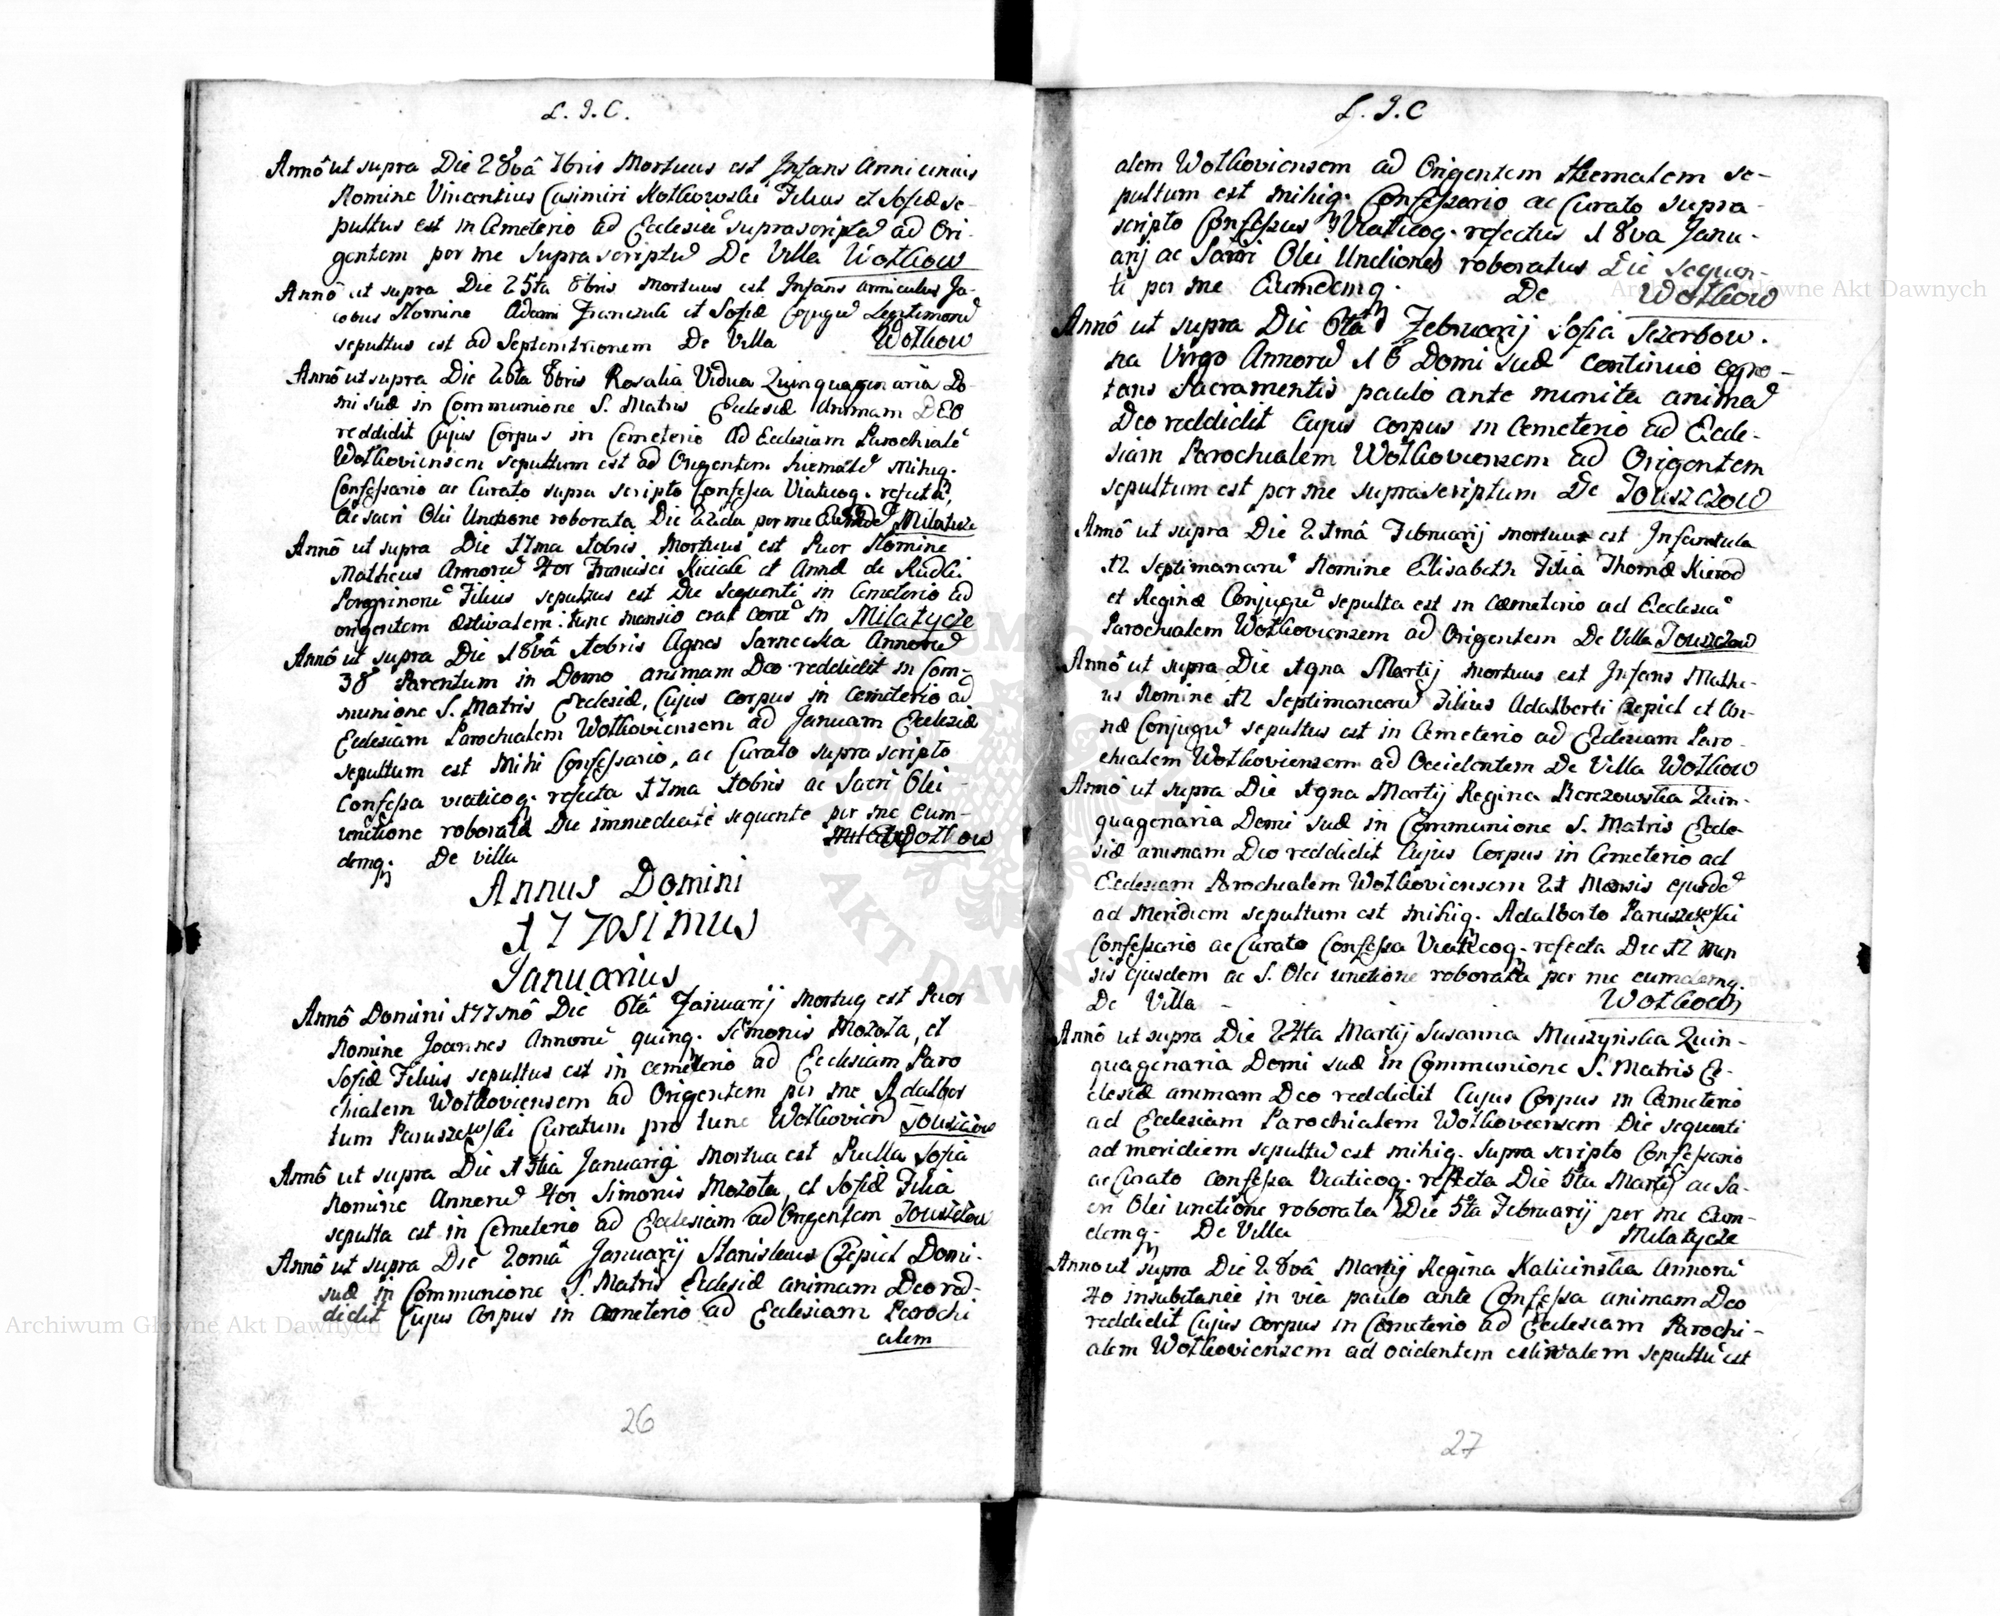 L. J. C.
Annô ut supra Die 28vâ 7bris Mortuus est Infans Anni unius
Nomine Vincentius Casimiri Kotkowski Filius et Sofiæ se-
pultus est in Cemeterio ad Ecclesiã suprascriptã ad Ori-
gentem per me Suprascriptũ De Villa Wołkow
Annô ut supra Die 25ta 8bris mortuus est Infans anniculus Ja-
cobus Nomine Adami Franczuk et Sofiæ Conjugũ Legitimorũ
sepultus est ad Septemtrionem De Villa Wołkow
Annô ut supra Die 26ta 8bris Rosalia Vidua Quinquagenaria Do-
mi suæ in Communione S. Matris Ecclesiæ Animam DEO
reddidit Cujus Corpus in Cemeterio ad Ecclesiam Parochialẽ
Wołkoviensem sepultum est ad Origentem hiemalẽ mihiq.
Confessario ac Curato supra scripto Confessa Viaticoq. refecta,
Ac sacri Olei Unctione roborata Die 22da per me Eumdẽ Milatycze
Annô ut supra Die 17ma 10bris Mortuus est Puer Nomine
Matheus Annorũ 4or Francisci Kiciak et Annæ de Rudki
Peregrinorũ Filius sepultus est Die Sequenti in Cemeterio ad
origentem æstivalem: tunc mansio erat eorũ in Milatycze
Annô ut supra Die 18vâ 10bris Agnes Sarnecka Annorũ
38 Parentum in Domo animam Deo reddidit in Com-
munione S. Matris Ecclesiæ, Cujus corpus in Cemeterio ad
Ecclesiam Parochialem Wołkoviensem ad Januam Ecclesiæ
sepultum est Mihi Confessario, ac Curato supra scripto
Confessa viaticoq. refecta 17ma 10bris ac Sacri Olei
unctione roborata Die immediatè sequente per me eum-
demq. De villa Wołkow
Annus Domini
1770simus
Januarius
Annô Domini 1770mô Die 6tâ Januarij Mortuq est Puer
Nomine Joannes Annorũ quinq. Simonis Mozoła, et
Sofiæ Filius sepultus est in cemeterio ad Ecclesiam Paro
chialem Wołkoviensem ad Origentem per me Adalber
tum Paruszewski Curatum pro tunc Wołkoviensẽ Touszczow
Annô ut supra Die 13tiâ Januarij mortua est Puella Sofia
Nomine Annorũ 4or Simonis Mozoła, et Sofiæ Filia
sepulta est in Cemeterio ad Ecclesiam ad Origentem Touszczow
Annô ut supra Die 20mâ Januarij Stanislaus Czepiel Domi-
suæ in Communione S. Matris Ecclesiæ animam Deo red-
didit Cujus Corpus in Cemeterio ad Ecclesiam Parochi
alem
26
L. J. C
alem Wołkoviensem ad Origentem Hiemalem se-
pultum est mihiq. Confessario ac Curato supra-
scripto Confessus Viaticoq. refectus 18va Janu-
arij ac Sacri Olei Unctione roboratus Die sequen-
ti per me Eumdemq. De Wołkow
Annô ut supra Die 6tâ Februarij Sofia Szerbow.
na Virgo Annorũ 16 Domi suæ continuo egro-
tans Sacramentis paulo ante munita animã
Deo reddidit Cujus corpus in Cemeterio ad Eccle-
siam Parochialem Wołkoviensem ad Origentem
sepultum est per me suprascriptum De Touszczow
Annô ut supra Die 21mâ Februarij mortua est Infantula
12 Septimanarũ Nomine Elisabeth Filia Thomæ Kierod
et Reginæ Conjugũ sepulta est in cæmeterio ad Ecclesiã
Parochialem Wołkoviensem ad Origentem De Villa Touszczow
Annô ut supra Die 19na Martij mortuus est Infans Mathe-
us Nomine 12 Septimanarũ Filius Adalberti Czepiel et An-
næ Conjugũ sepultus est in Cemeterio ad Ecclesiam Paro-
chialem Wołkoviensem ad Occidentem De Villa Wołkow
Annô ut supra Die 19na Martij Regina Berezowska Quin-
quagenaria Domi suæ in Communione S. Matris Eccle-
siæ animam Deo reddidit Cujus Corpus in Cemeterio ad
Ecclesiam Parochialem Wołkoviensem 21 Mensis ejusdẽ
ad Meridiem sepultum est mihiq. Adalberto Paruszewski
Confessario ac Curato Confessa Viaticoq. refecta Die 12 Men
sis ejusdem ac S. Olei unctione roborata per me eumdemq.
De Villa Wołkow
Annô ut supra Die 24ta Martij Susanna Muszyńska Quin-
quagenaria Domi suæ in Communione S. Matris Ec-
clesiæ animam Deo reddidit Cujus Corpus in Cemeterio
ad Ecclesiam Parochialem Wołkoviensem Die sequenti
ad meridiem sepultũ est mihiq. supra scripto Confessario
ac Curato Confessa Viaticoq. refecta Die 5ta Martij ac Sa-
cri Olei unctione roborata Die 5ta Februarij per me Eum-
demq. De Villa Milatycze
Anno ut supra Die 28vâ Martij Regina Kalicinska Annorũ
40 insubitanee in via paulo ante Confessa animam Deo
reddidit Cujus corpus in Cemeterio ad Ecclesiam Parochi-
alem Wołkoviensem ad ocidentem estivalem sepultũ est
27
Archiwum Główne Akt Dawnych
Archiwum Główne Akt Dawnych
AKT DAWNYCH